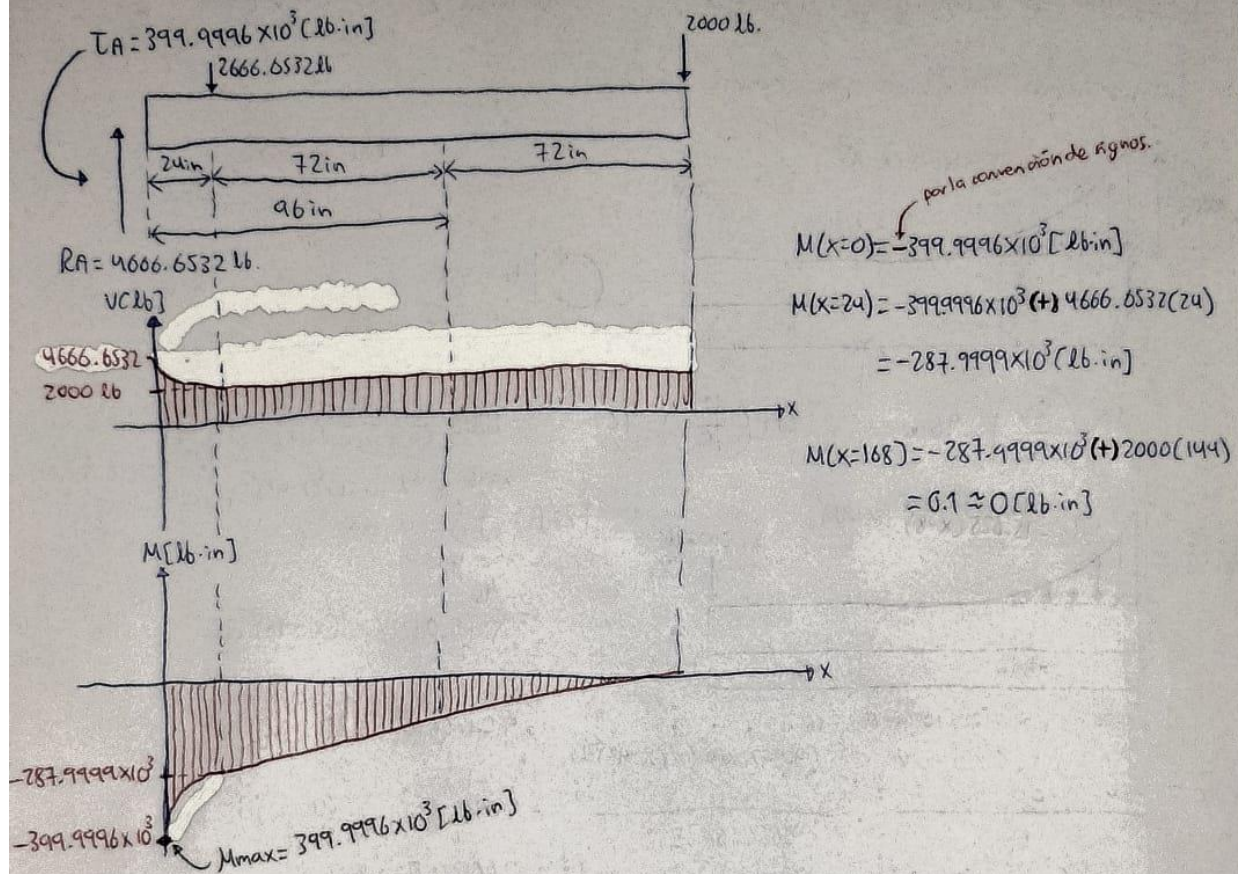 τA = 399.9996 x10³ [lb·in]
2000 lb.
2666.6532 lb
24in
72in
72in
96in
RA = 4666.6532 lb.
V[lb]
4666.6532
2000 lb
x
M[lb·in]
x
-287.9999x10³
-399.9996 x 10³
Mmax = 399.9996 x10³ [lb·in]
por la convención de signos.
M(x=0) = -399.9996 x10³ [lb·in]
M(x=24) = -399.9996 x10³ (+) 4666.6532(24)
= -287.9999 x10³ [lb·in]
M(x=168) = -287.9999 x10³ (+) 2000(144)
= 0.1 ≈ 0 [lb·in]